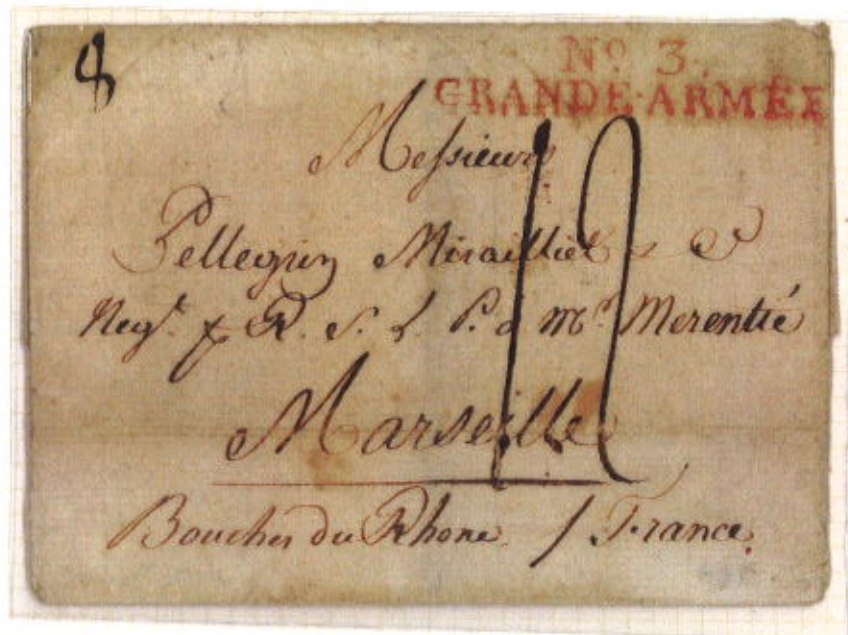 8
No 3.
GRANDE-ARMÉE
Messieurs
Pellegrin
Negt. R. S. P. à Mr. Merentié
12
Marseille
Bouches du Rhone / France.